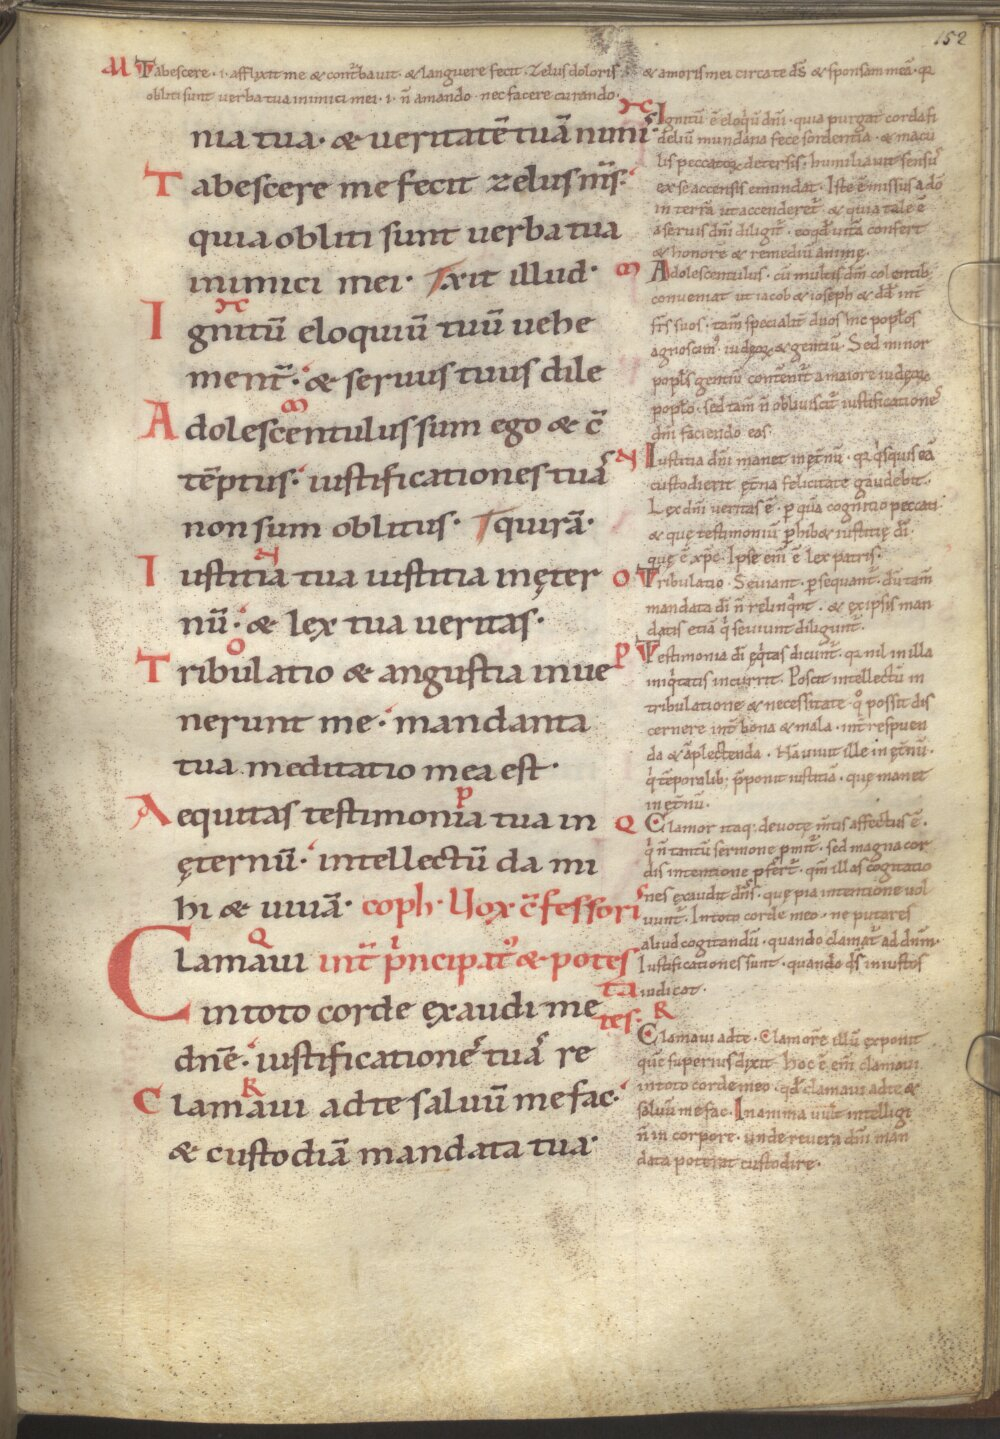 152
M Tabescere · i · afflixit me & cont̄bauit · & languere fecit · Zelus doloris & amoris mei circa te dš & sponsam meā · q̄
obliti sunt verba tua inimici mei · i · ñ amando · nec facere curando ·
nia tua · & veritatē tuā nimiˢ
Tabescere me fecit zelus m̄s ·
quia obliti sunt verba tua
inimici mei · Txit illud ·
Ignitū eloquiū tuū uehe
ment̄ · & seruus tuus dile
Adolescentulus sum ego & c̄
tēptus · iustificationes tuaˢ
non sum oblitus · Tquirā ·
Iustitia tua iustitia in ęter
nū · & lex tua ueritas ·
Tribulatio & angustia inue
nerunt me · mandanta
tua meditatio mea est ·
Aequitas testimonia tua in
ęternū · intellectū da mi
hi & uiuā · coph · Uox c̄fessori
Clamaui int̄ p̄ncip.it & potes
ta
in toto corde exaudi me tes ·
dn̄e · iustificationeˢ tuaˢ re
Clamaui ad te saluū me fac ·
& custodiā mandata tua ·
Ignitū ē eloq̄ū dn̄i · quia purgat corda fi
deliū mundana fece sordentia · & macu
lis peccatoꝝ detersis · humiliauit sensuˢ
ex se accensis emundat · Iste ē missus a dō
in terrā ut accenderet̄ · & quia tale ē
a seruis dn̄i diligit̄ · eo qđ uitā confert
& honorē & remediū animę ·
m Adolescentulus · cū multis dm̄ colentib;
conueniat ut iacob & ioseph & dd̄ int̄
frs̄ suos · tam̄ specialit̄ duos hic popl̄os
agnoscim᷒ iudęoꝝ & gentiū · Sed minor
popl̄s gentiū contēnit̄ a maiore iudęoꝝ
popl̄o · sed tam̄ ñ obliuiscit̄ iustificationeˢ
dn̄i faciendo eas ·
N Iustitia dn̄i manet in ęt̄nū · q̄ q̇squis eā
custodierit ęt̄na felicitate gaudebit ·
Lex dn̄i ueritas ē · p quā cognitio peccati
& quę testimoniū p̄hib& iustitię di ·
quę ē xp̄c · Ipse eni ē lex patris ·
O Tribulatio · Seuiant · p̄sequant̄ · dū tam̄
mandata dī ñ relinq̄nt · & ex ipsis man
datis etiā q̇ seuiunt diligunt̄ ·
P Testimonia dī eq̄tas dicunt̄ · q̄ nil in illa
iniq̇tatis incurrit · Poscit intellectū in
tribulatione & necessitate · q᷒ possit dis
cernere int̄ bona & mala · int̄ respuen
da & āplectenda · Nā uiuit ille in ęt̄nū ·
q̇ tēporalib; p̄ponit iustitiā · quę manet
in ęt̄nū ·
Q Clamor itaq; deuotę m̄tis affectus ē ·
q̇ ñ tantū sermone p̄mit̄ · sed magna cor
dis intentione p̄fert̄ · qm̄ illas cogitatio
nes exaudit dn̄s · quę pia intentione uol
uunt̄ · In toto corde meo · ne putares
aliud cogitandū · quando clamat̄ ad dn̄m ·
Iustificationes sunt · quando q̇s iniustos
iudicat ·
R
Clamaui ad te · Clamorē illū exponit
quē superius dixit · hoc ē eni clamaui
in toto corde meo · qđ clamaui ad te &
saluū me fac · In anima uult intelligi
ñ in corpore · unde reuera dn̄i man
data poterat custodire ·